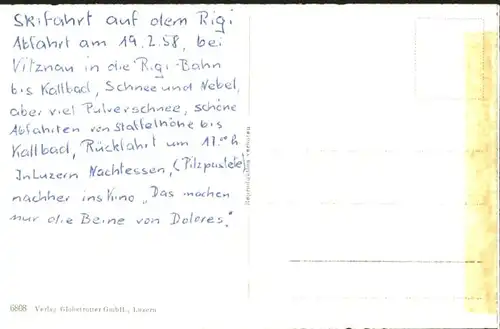 Skifahrt auf dem Rigi
Abfahrt am 19.2.58, bei
Vitznau in die Rigi-Bahn
bis Kaltbad, Schnee und Nebel,
aber viel Pulverschnee, schöne
Abfahrten von Staffelhöhe bis
Kaltbad, Rückfahrt um 17.00 h
In Luzern Nachtessen, (Pilzpastete)
nachher ins Kino „Das machen
nur die Beine von Dolores."
Reproduktion verboten
6808 Verlag Globetrotter GmbH., Luzern